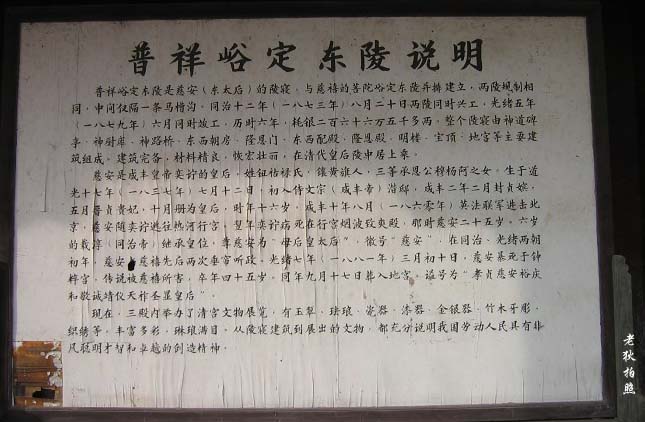 普祥峪定东陵说明
普祥峪定东陵是慈安（东太后）的陵寝，与慈禧的菩陀峪定东陵并排建立，两陵规制相
同，中间仅隔一条马槽沟，同治十二年（一八七三年）八月二十日两陵同时兴工，光绪五年
（一八七九年）六月同时竣工，历时六年，耗银二百六十六万五千多两，整个陵寝由神道碑
亭、神厨库、神路桥、东西朝房、隆恩门、东西配殿、隆恩殿、明楼、宝顶、地宫等主要建
筑组成，建筑完备，材料精良，恢宏壮丽，在清代皇后陵中居上乘。
慈安是咸丰皇帝奕詝的皇后，姓钮祜禄氏，镶黄旗人，三等承恩公穆杨阿之女，生于道
光十七年（一八三七年）七月十二日，初入侍文宗（咸丰帝）潜邸，咸丰二年二月封贞嫔，
五月晋贞贵妃，十月册为皇后，时年十六岁，咸丰十年八月（一八六零年）英法联军进击北
京，慈安随奕詝逃往热河行宫，翌年奕詝病死在行宫烟波致爽殿，那时慈安二十五岁。六岁
的载淳（同治帝）继承皇位，尊慈安为“母后皇太后”，徽号“慈安”，在同治、光绪两朝
初年，慈安、慈禧先后两次垂帘听政，光绪七年（一八八一年）三月初十日，慈安暴死于钟
粹宫，传说被慈禧所害，卒年四十五岁，同年九月十七日葬入地宫，谥号为“孝贞慈安裕庆
和敬诚靖仪天祚圣显皇后”。
现在，三殿内举办了清宫文物展览，有玉翠、珐琅、瓷器、漆器、金银器、竹木牙彫、
织绣等，丰富多彩，琳琅满目，从陵寝建筑到展出的文物，都充分说明我国劳动人民具有非
凡聪明才智和卓越的创造精神。
老狄拍照